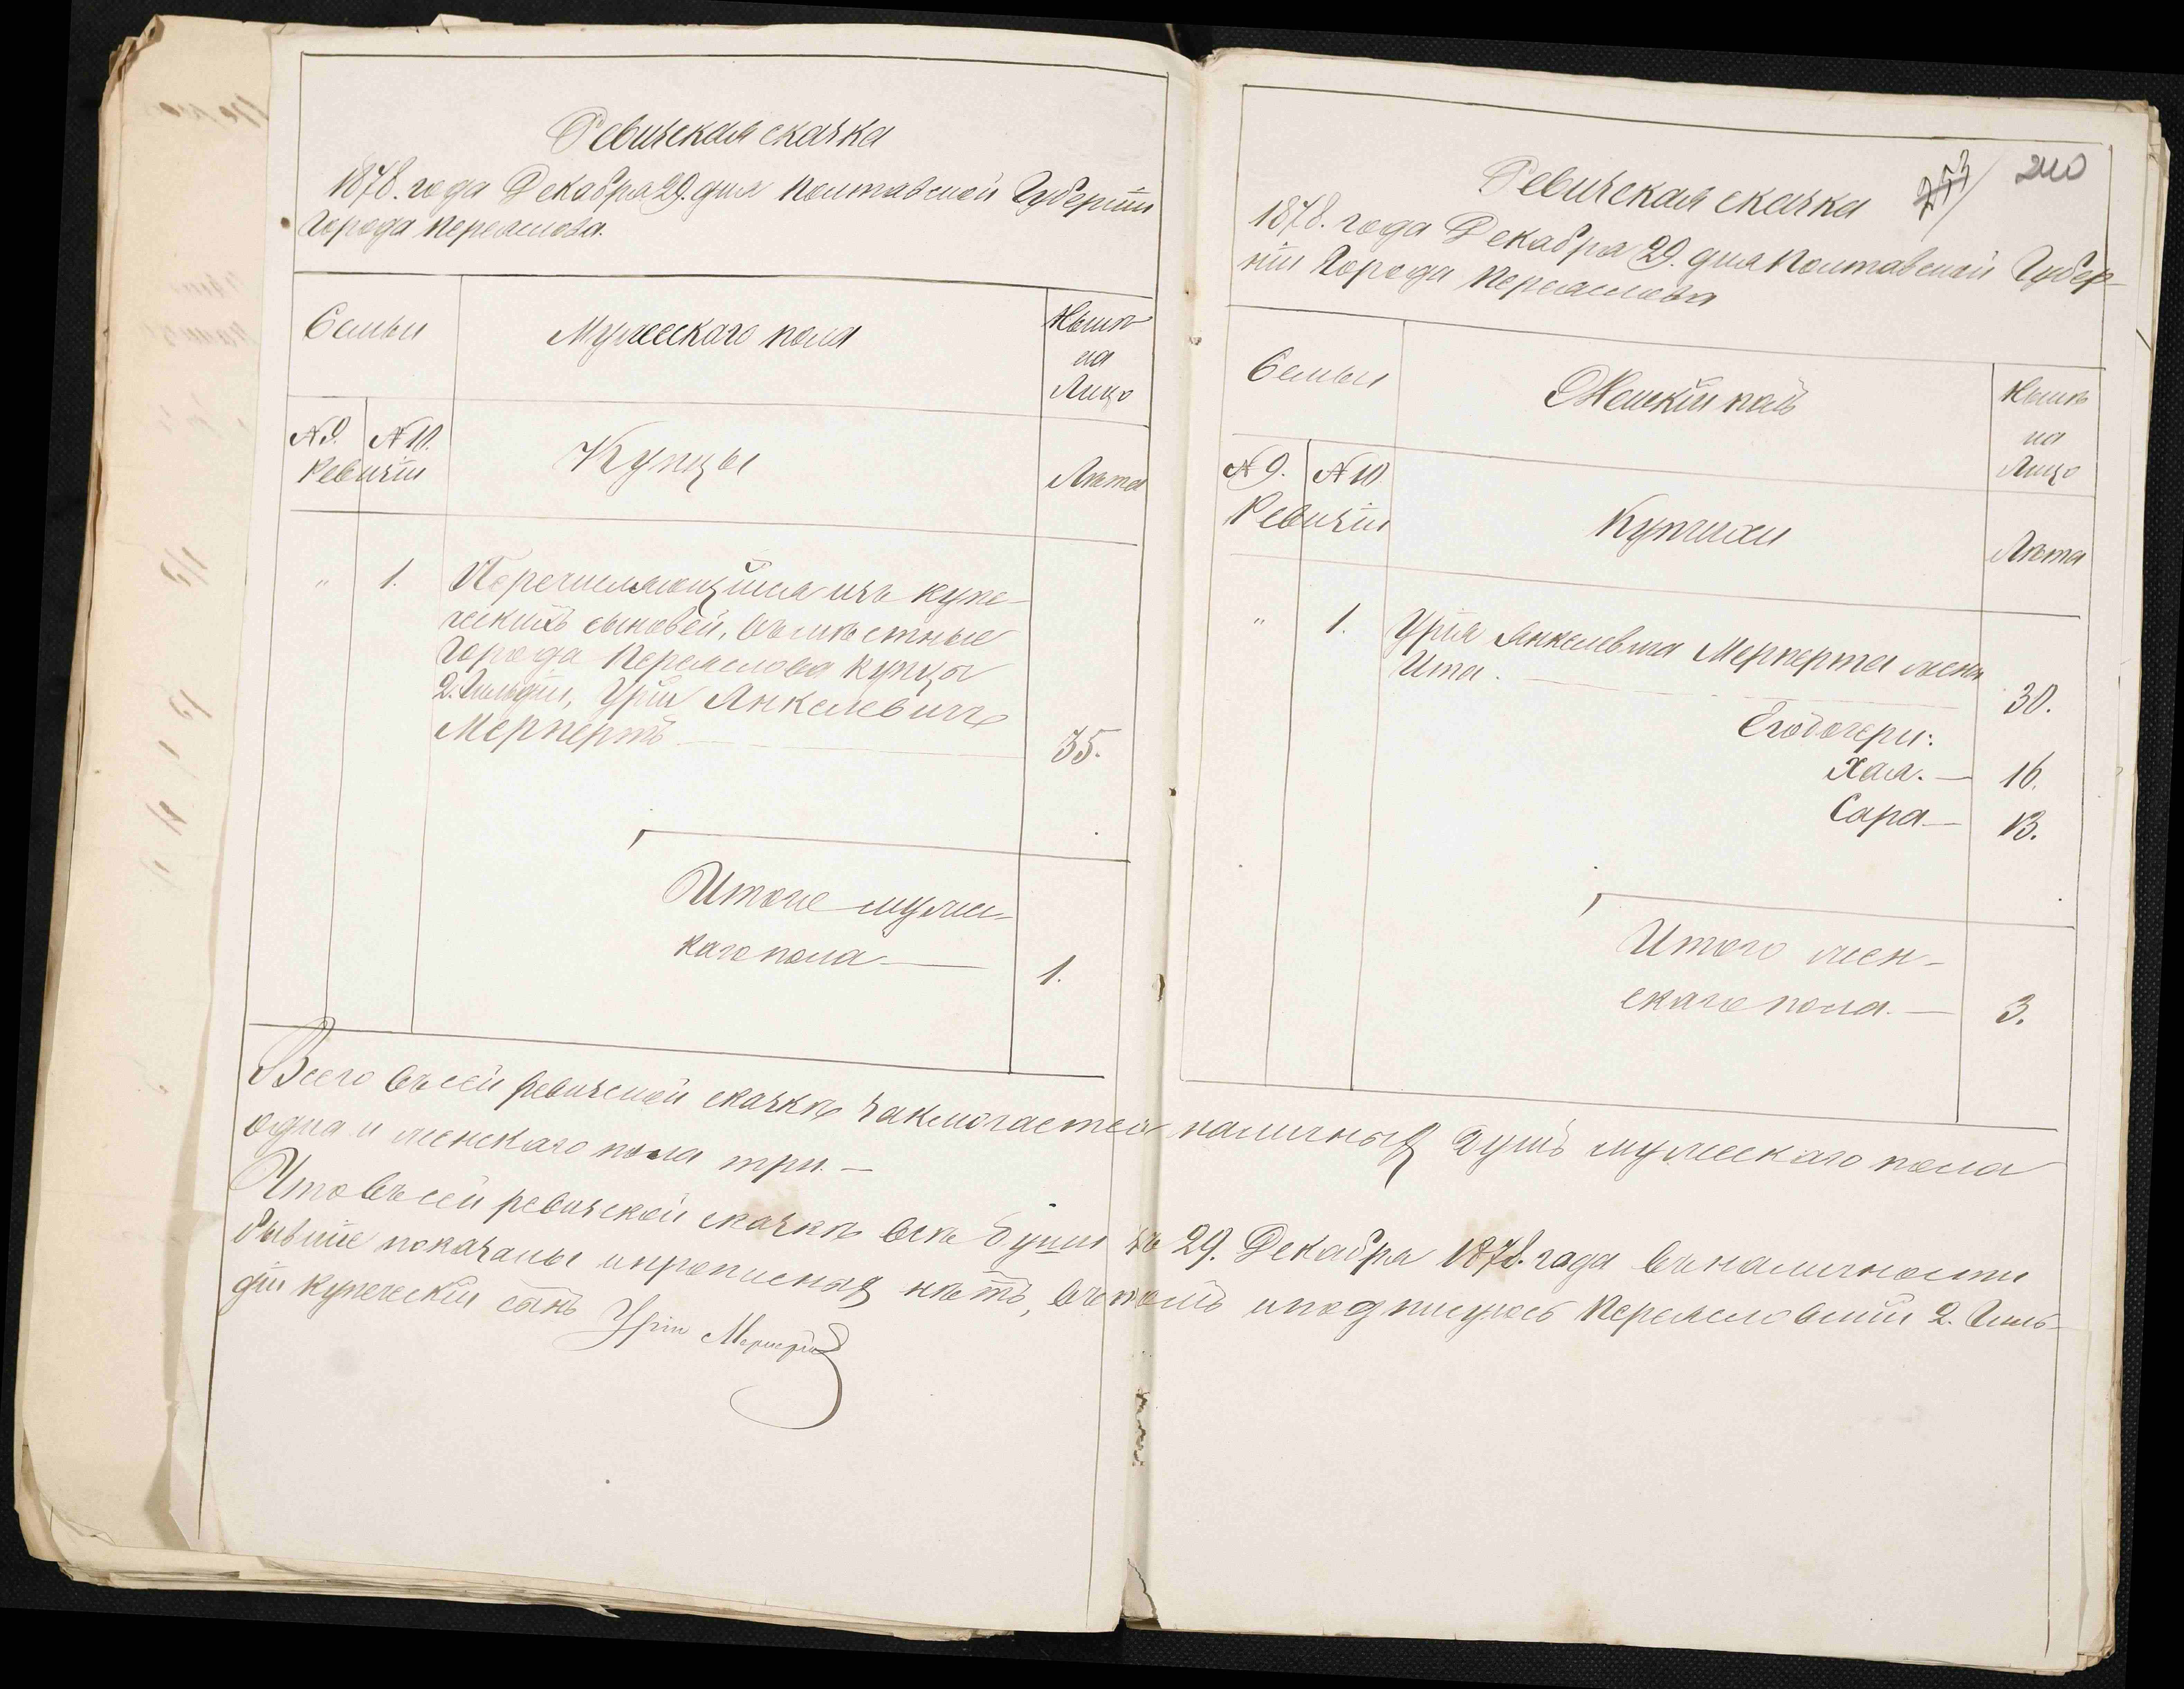 Ревизская сказка
1878. года Декабря 29. дня Полтавской Губернии
Города Переяслова.
Семьи
Мужескаго пола
Нынѣ
на
Лицо
№ 9.
№ 10.
Ревизіи
Купцы
Лѣта
"
1.
Перечисляющійся изъ купе-
ческихъ сыновей, въ мѣстные
Города Переяслова купцы
2. Гильдіи, Урій Янкелевичъ
Мерперть
35.
Итого мужес-
каго пола
1.
273
240
Ревизская сказка
1878. года Декабря 29. дня Полтавской Губер-
ніи Города Переяслова
Семьи
Женскій полъ
Нынѣ
на
Лицо
№ 9.
№ 10
Ревизіи
Купчихи
Лѣта
"
1.
Урія Янкелевича Мерперта жена
Ита.
30.
Его дочери:
Хая.
16.
Сара
13.
Итого жен-
скаго пола.
3.
Всего въ сей ревизской сказкѣ заключается наличныхъ душъ мужескаго пола
одна и женскаго пола три. —
Что въ сей ревизской сказкѣ всѣ души къ 29. Декабря 1878. года въ наличности
бывшіе показаны и прописныхъ нѣтъ, въ томъ и подписуюсь Переяславскій 2. Гиль-
діи купеческій сынъ Урій Мерперть